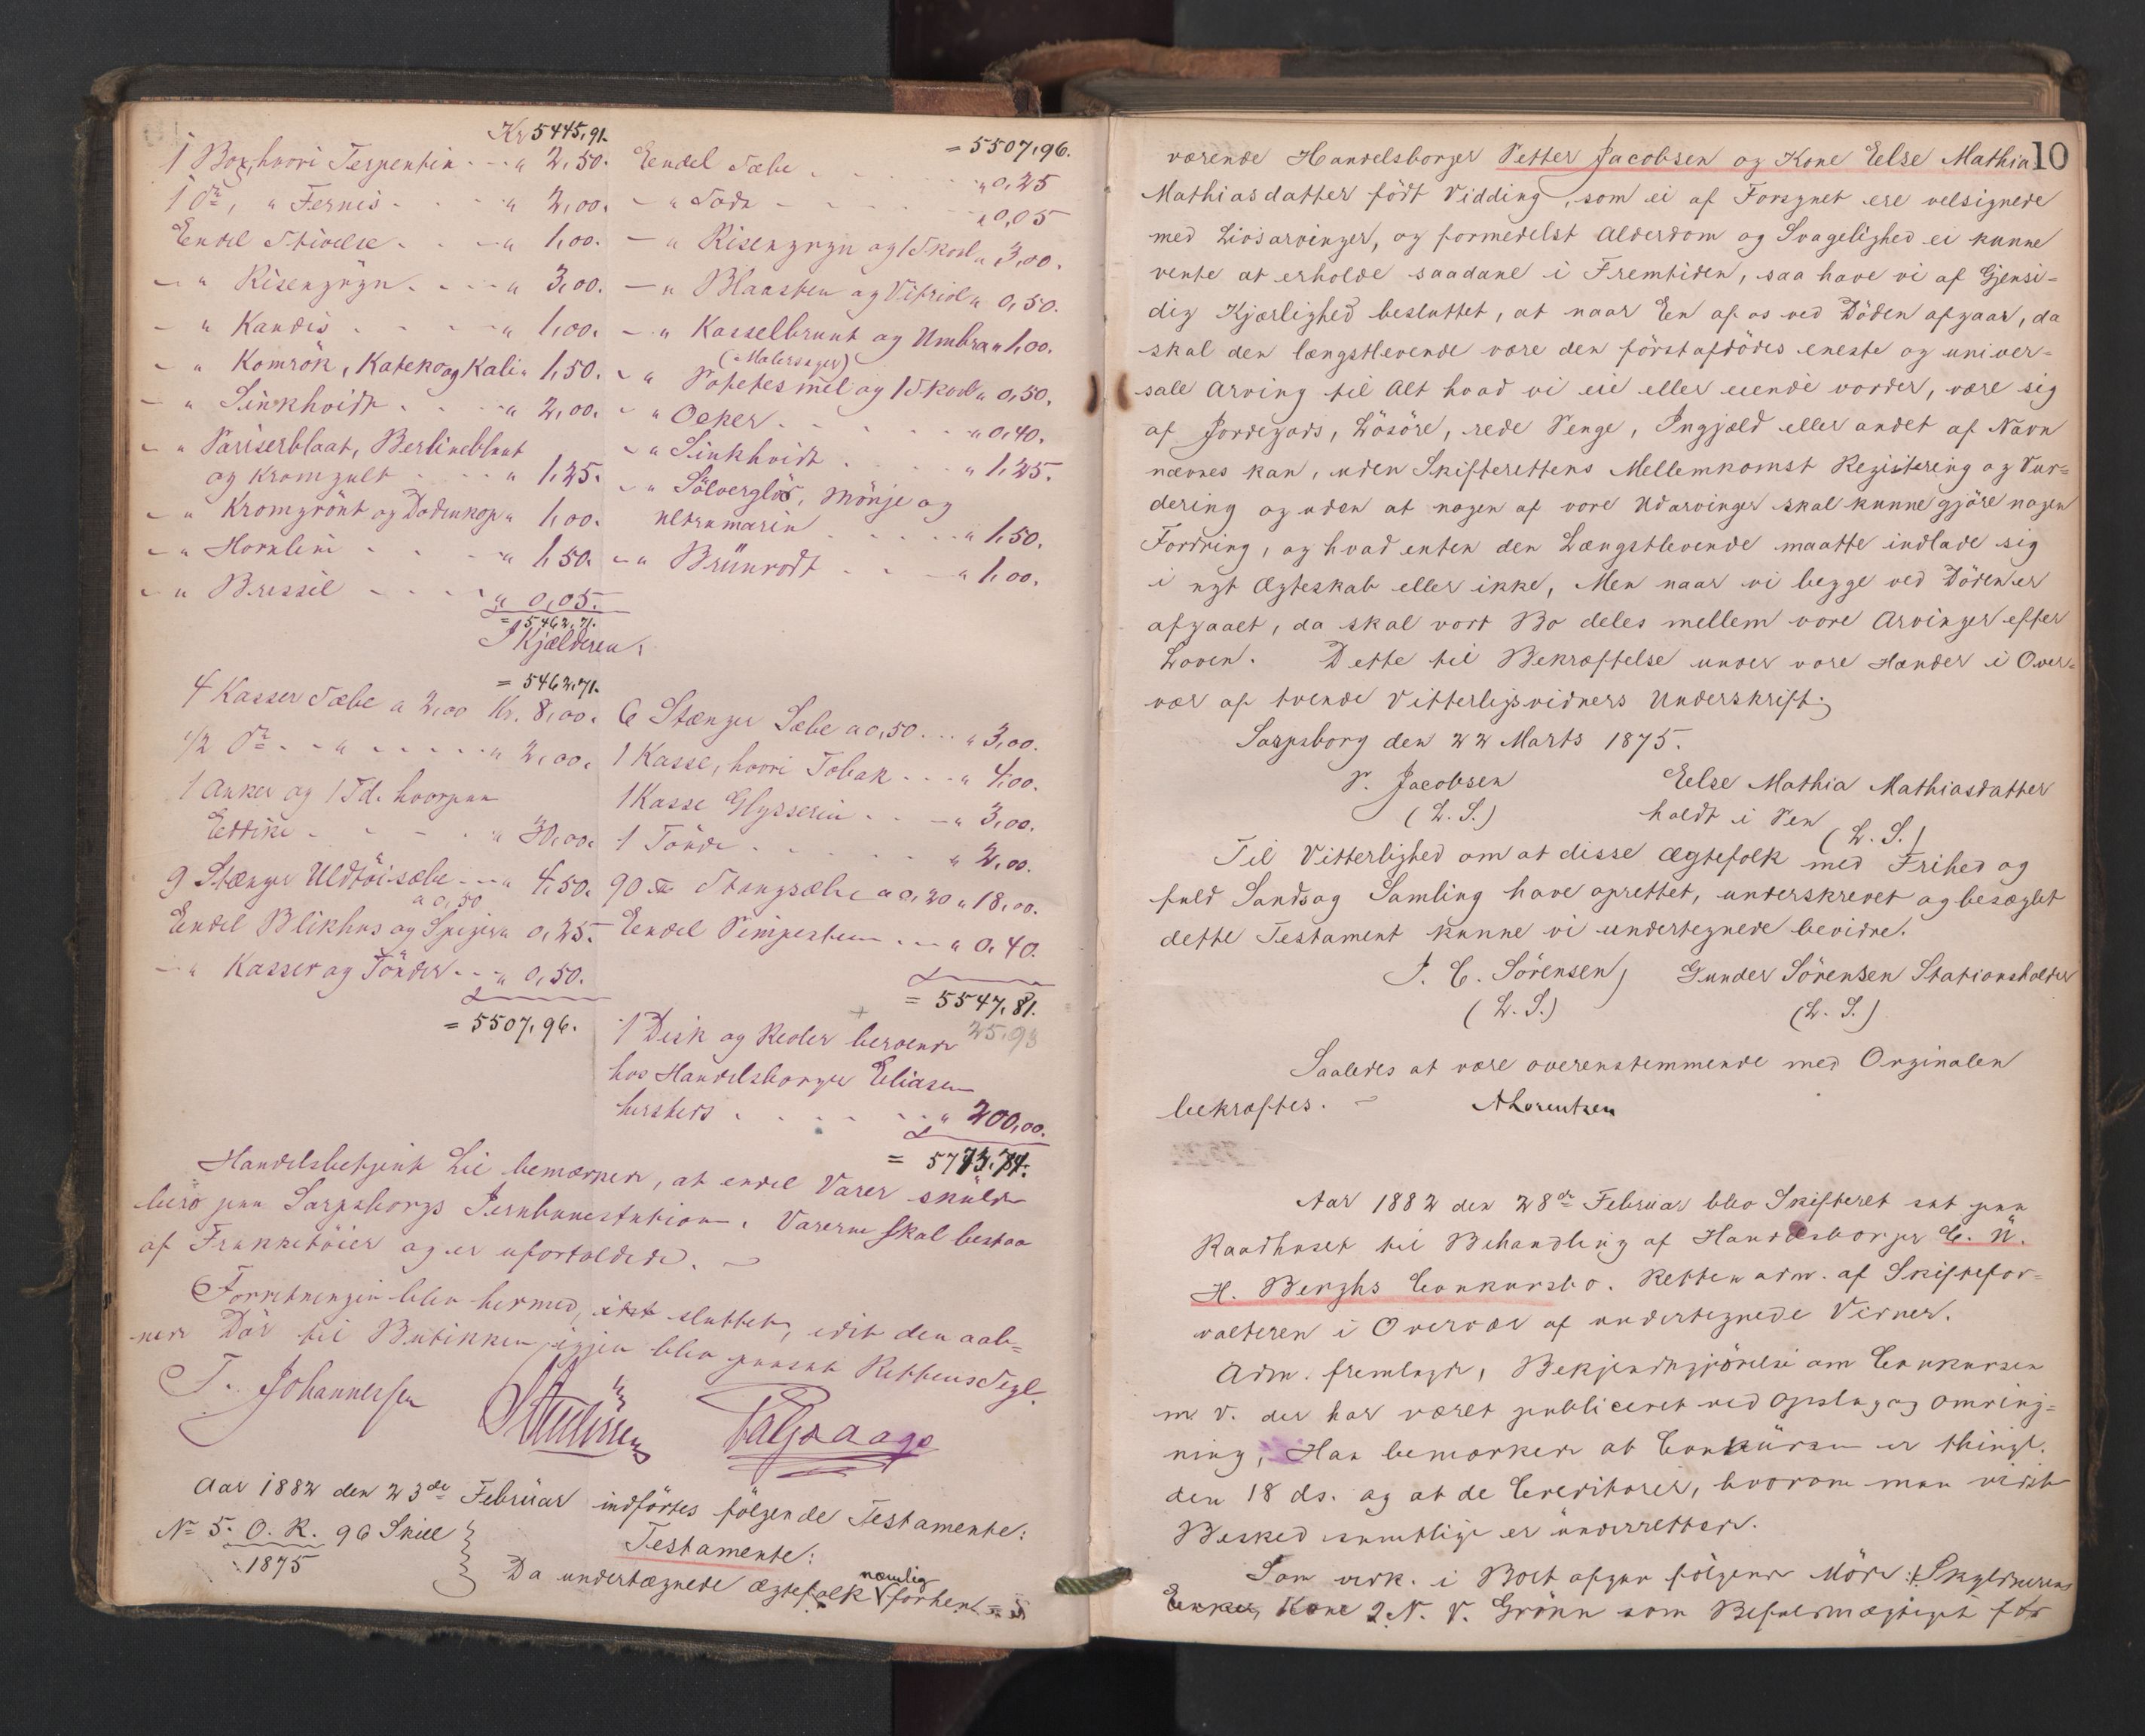 Kr 5445,91.
1 Box, hvori Terpentin - - " 2,50.
1 Do, " Fernis - - " 2,00.
Endel Stivelse - - " 1,00.
- " Risengryn - - " 3,00.
- " Kandis - - " 1,00.
- " Komrök, Kateko og Kali " 1,50.
- " Sinkhvidt - - " 2,00.
- " Pariserblaat, Berlinerblaat
og Kromgult - - " 1,25.
- " Kromgrönt og Dodenkop " 1,00.
- " Hornlim - - " 1,50.
- " Bressil - - " 0,05.
= 5462,71.
= 5507,96.
Endel Sæbe - - " 0,25
- " Soda - - " 0,05
- " Risengryn og 1 Skarl " 3,00.
- " Blaasten og Vitriol " 0,50.
- " Kasselbrunt og Umbra " 1,00.
(" Malersager)
- " Potetesmel og 1 Skarl " 0,50.
- " Ocker - - " 0,40.
- " Sinkhvidt - - " 1,25.
- " Sölverglös, Mönje og
ultramarin - - " 1,50.
- " Brünrodt - - " 1,00.
I Kjælderen:
= 5462,71.
4 Kasser Sæbe a 2,00 Kr. 8,00.
1/2 Do - " - - " 2,00.
1 Anker og 1 Td. hvorpaa
Eddike - - " 30,00.
9 Stænger Uldtöisæbe - - " 4,50.
a 0,50
Endel Blikhus og Spiger " 0,25.
- " Kasser og Tönder - - " 0,50.
= 5507,96.
6 Stænger Sæbe a 0,50 - - " 3,00.
1 Kasse, hvori Tobak - - " 4,00.
1 Kasse Glysserin - - " 3,00.
1 Tönde - - " 2,00.
90 Stangsæbe a 0,20 " 18,00.
Endel Pimpesteen - - " 0,40.
= 5547,81.
25,93
1 Disk og Reoler beroende
hos Handelsborger Eliasen
hersteds - - " 200,00.
= 5773,74.
Handelsbetjent Lie bemærkede, at endel Varer skulde
bero paa Sarpsborgs Jernbanestation. Varerne skal bestaa
af Frakketöier og er ufortoldede. -
Forretningen blev hermed sluttet, idet den aab-
nede Dör til Butikken igjen blev paasat Rettens Segl.
T. Johannessen
Aar 1882 den 23de Februar indförtes fölgende Testamente:
No 5. O. R. 96 Skill
1875
Testamente:
Da undertægnede Ægtefolk næmlig forhen-
10
værende Handelsborger Petter Jacobsen og Kone Eelse Mathia
Mathiasdatter födt Vidding, som ei af Forsynet ere velsignede
med Livsarvinger, og formedelst Alderdom og Svagelighed ei kunne
vente at erholde saadane i Fremtiden, saa have vi af Gjensi-
dig Kjærlighed besluttet, at naar En af os ved Döden afgaar, da
skal den længstlevende være den förstafdödes eneste og univer-
sale Arving til Alt hvad vi eie eller eiende vorder, være sig
af Jordegods, Lösöre, rede Penge, Ingjæld eller andet af Navn
nævnes kan, uden Skifterettens Mellemkomst Registering og Vur-
dering og uden at nogen af vore Udarvinger skal kunne gjöre nogen
Fordring, og hvad enten den Længstlevende maatte indlade sig
i nyt Ægteskab eller ikke, Men naar vi begge ved Döden er
afgaaet, da skal vort Bo deles mellem vore Arvinger efter
Loven. Dette til Bekræftelse under vore Hænder i Over-
vær af tvende Vitterligsvidners Underskrift;
Sarpsborg den 22 Marts 1875.
P. Jacobsen Eelse Mathia Mathiasdatter
(L. S.) holdt i Pen (L. S.)
Til Vitterlighed om at disse Ægtefolk med Frihed og
fuld Sands og Samling have oprettet, underskrevet og besæglet
dette Testament kunne vi undertegnede bevidne.
J. C. Sörensen, Gunder Sörensen Stationsholder
(L. S.) (L. S.)
Saaledes at være overenstemmende med Orginalen
bekræftes. - ALorentzen
Aar 1882 den 28de Februar blev Skifteret sat paa
Raadhuset til Behandling af Handelsborger C. N.
H. Berghs Conkursbo. Retten adm. af Skiftefor-
valteren i Overvær af undertegnede Vidner.
Adm. fremlagde, Bekjendtgjörelse om Conkursen
m. v. der har været publiceret ved Opslag og Omring-
ning, Han bemærkede at Conkürsen er thingl.
den 18 ds. og at de Creditorer, hvorom man vidste
Besked samtlige er ünderrettede.
Som vedk. i Boet afgav fölgende Möde: Skyldnerens
Kone 2. N. V. Grönn som Befuldmægtiget for